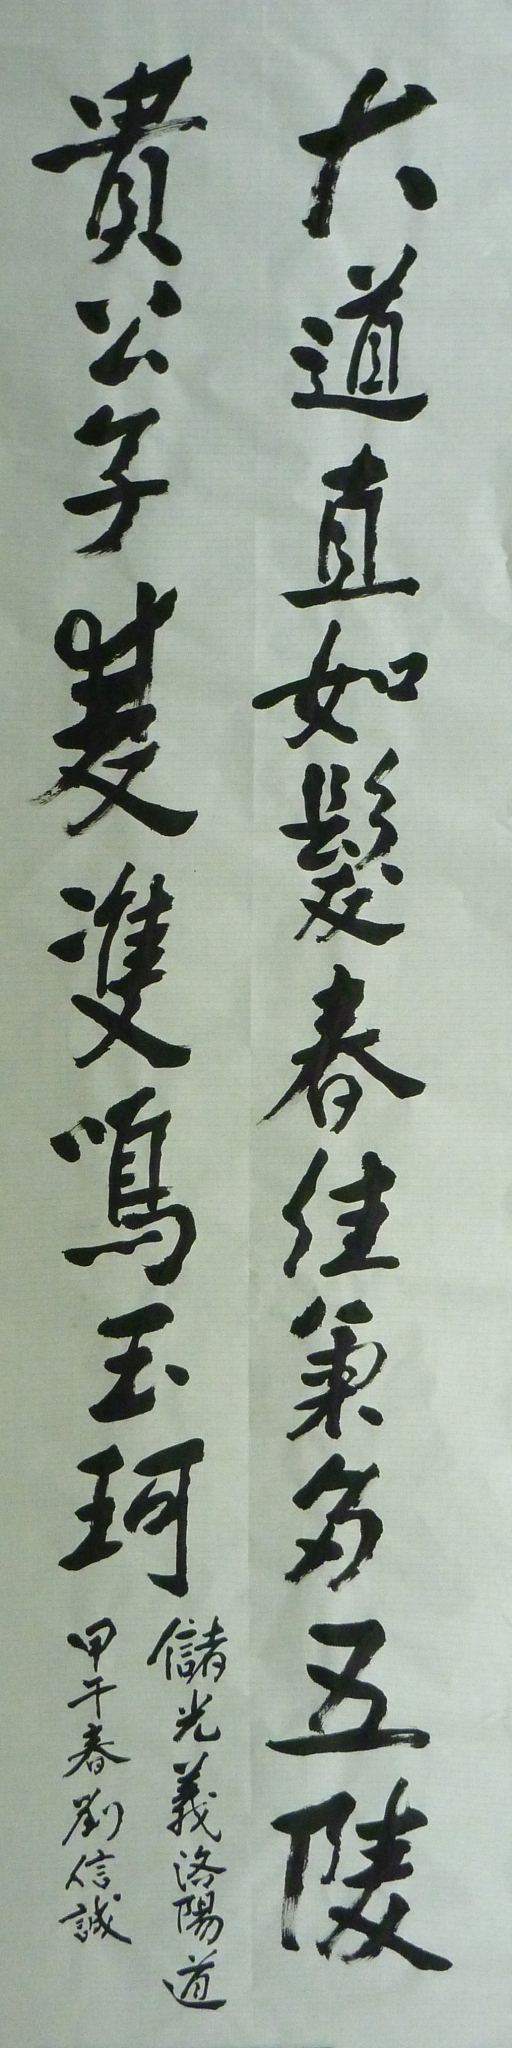 大道直如髮春佳氣多五陵
貴公子雙雙鳴玉珂
儲光義洛陽道
甲午春劉信誠